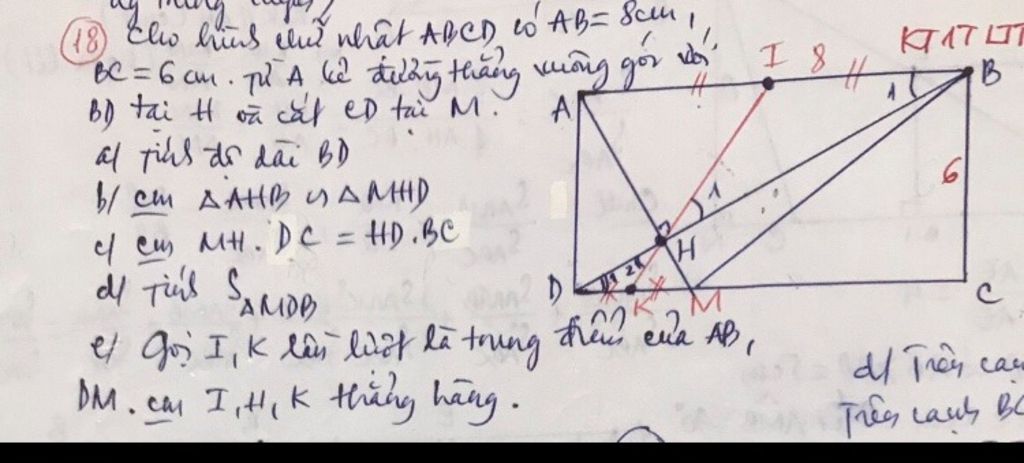 18 Cho hình chữ nhật ABCD có AB = 8cm,
BC = 6 cm. Từ A kẻ đường thẳng vuông góc với
BD tại H và cắt CD tại M.
a/ Tính độ dài BD
b/ cm △AHB ∽ △MHD
c/ cm MH. DC = HD. BC
d/ Tính S△MDB
e/ Gọi I, K lần lượt là trung điểm của AB,
DM. cm I, H, K thẳng hàng.
I 8
A B
1
6
1
H
D K M C
d/ Trên
Trên cạnh BC